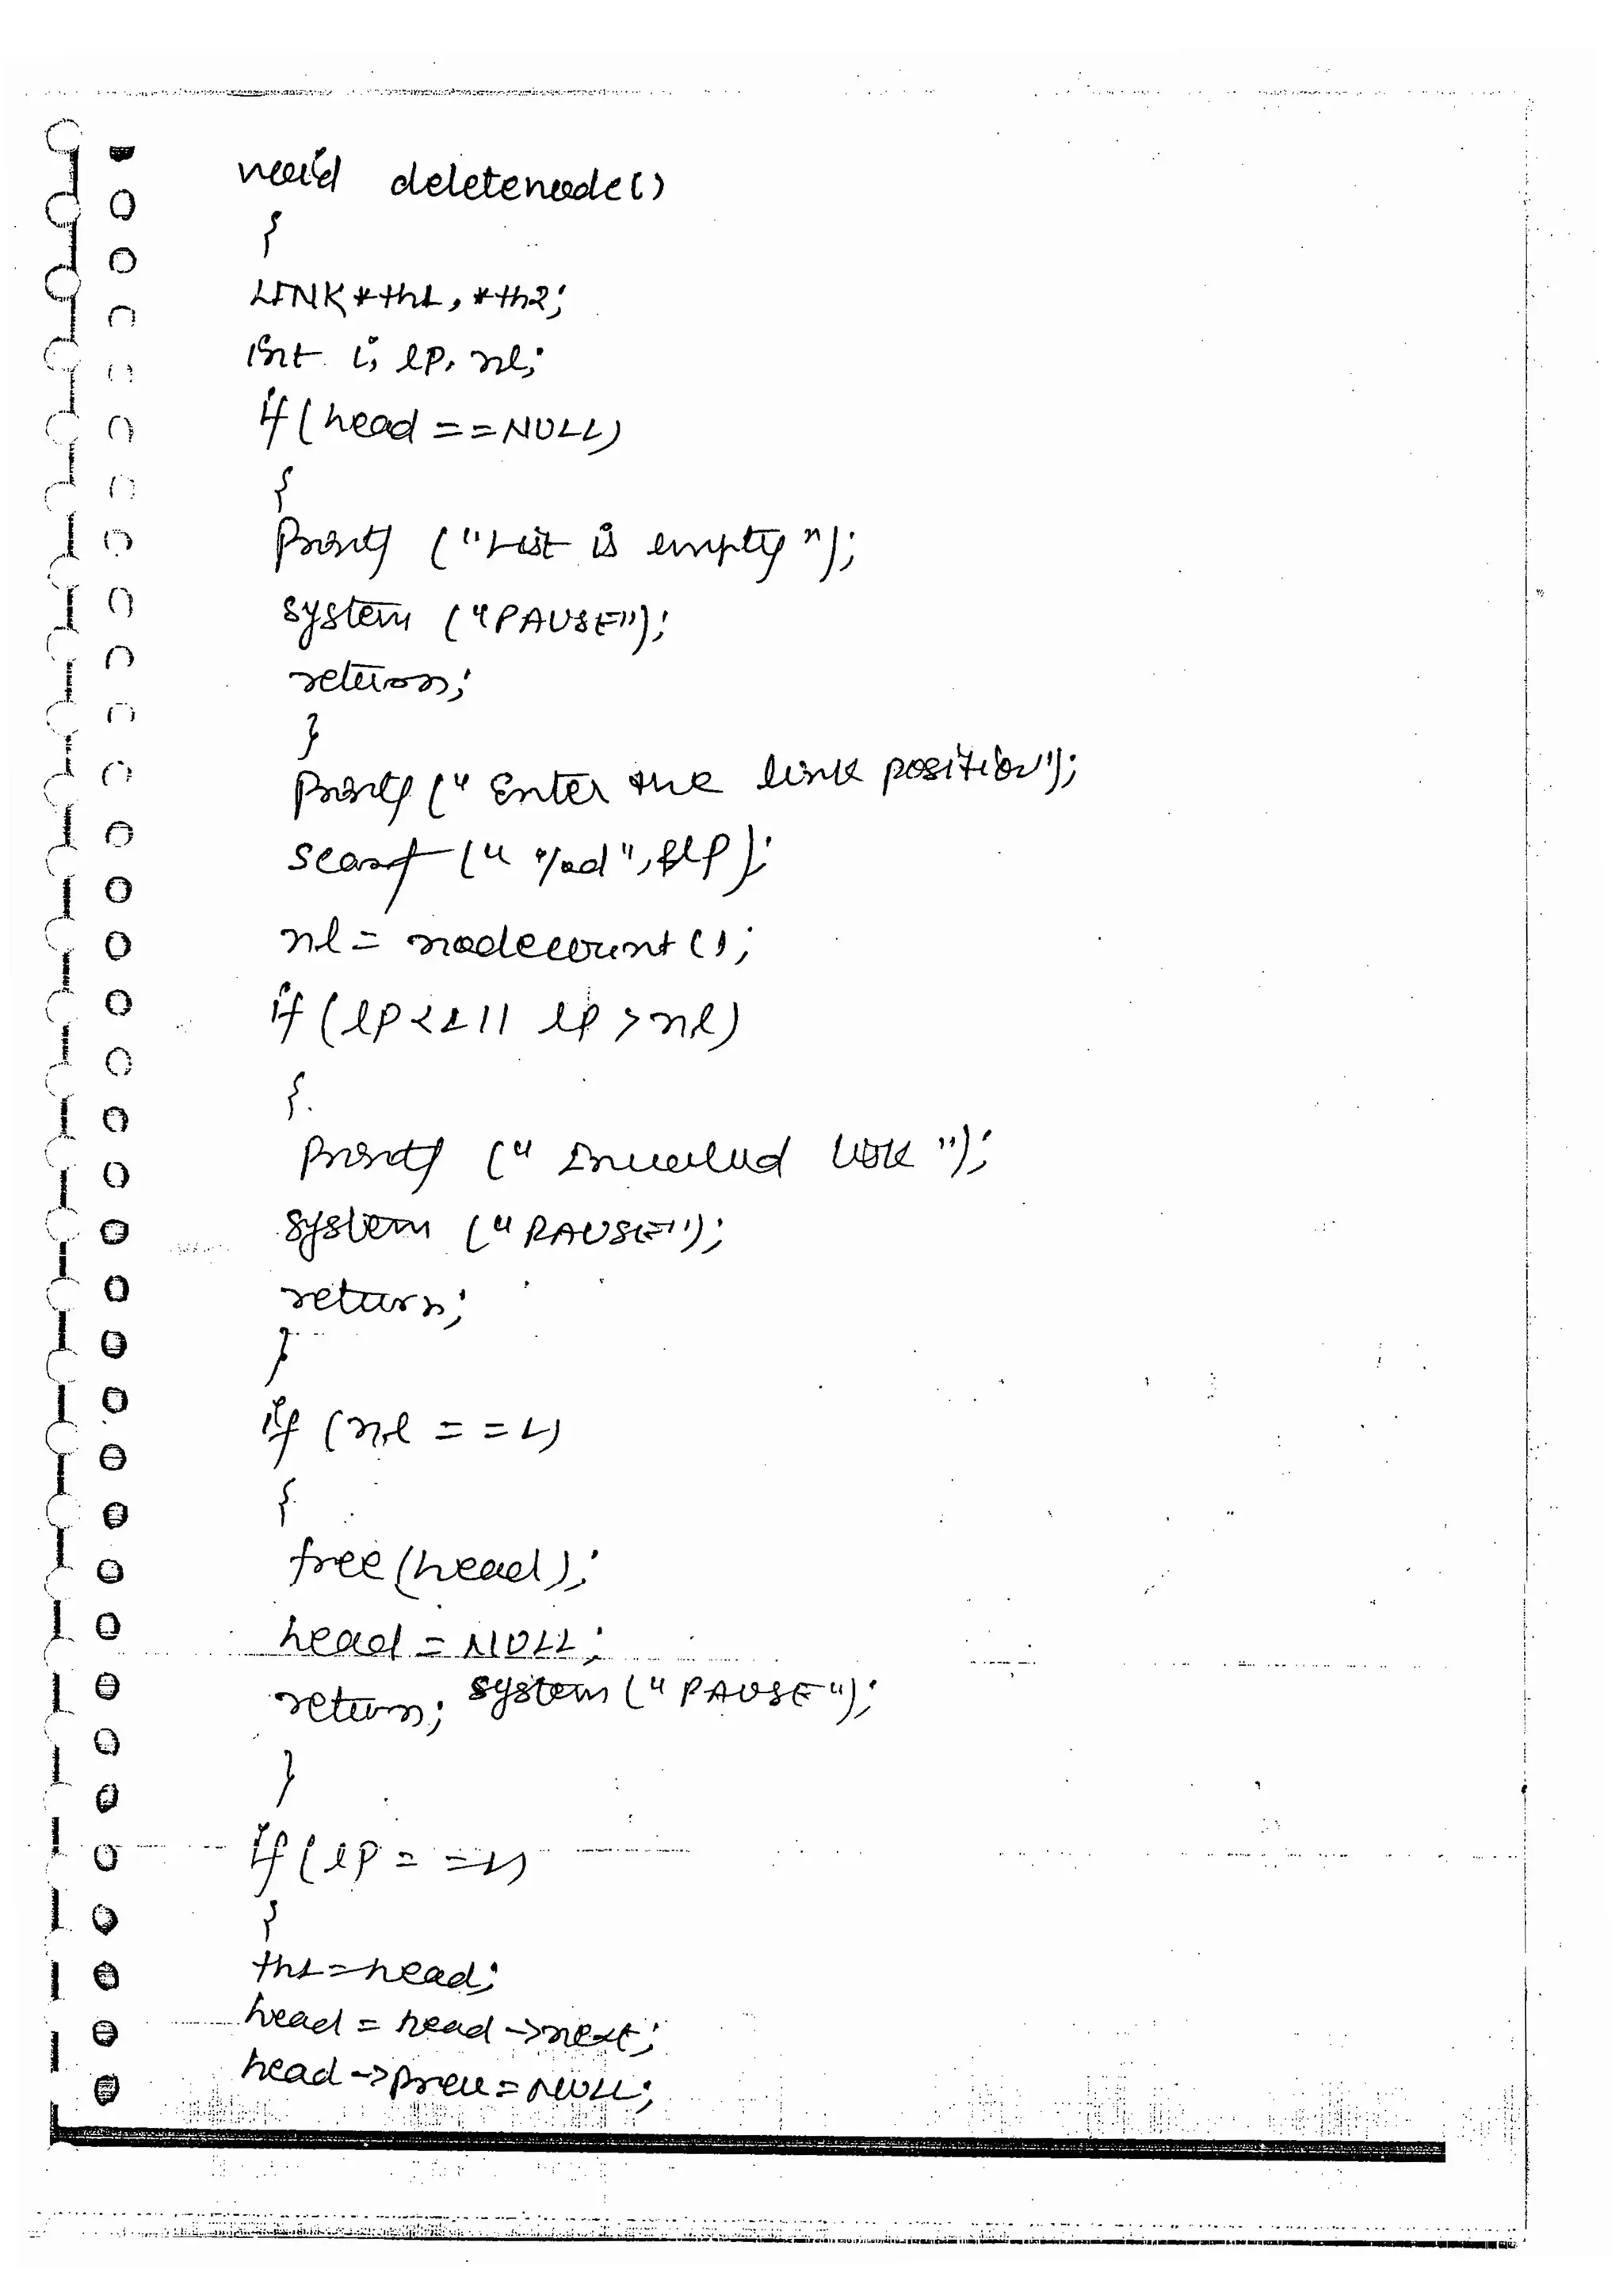 void deletenode()
{
LINK *th1, *th2;
int i, lp, nl;
if(head ==NULL)
{
printf ("List is empty");
system ("PAUSE");
return;
}
printf (" Enter the link position");
scanf (" %d", &lp);
nl = nodecount();
if (lp<1 || lp > nl)
{
printf (" Invalid link ");
system (" PAUSE");
return;
}
if (nl ==1)
{
free (head);
head = NULL;
return; system (" PAUSE");
}
if (lp ==1)
{
th1=head;
head = head ->next;
head ->prev = NULL;